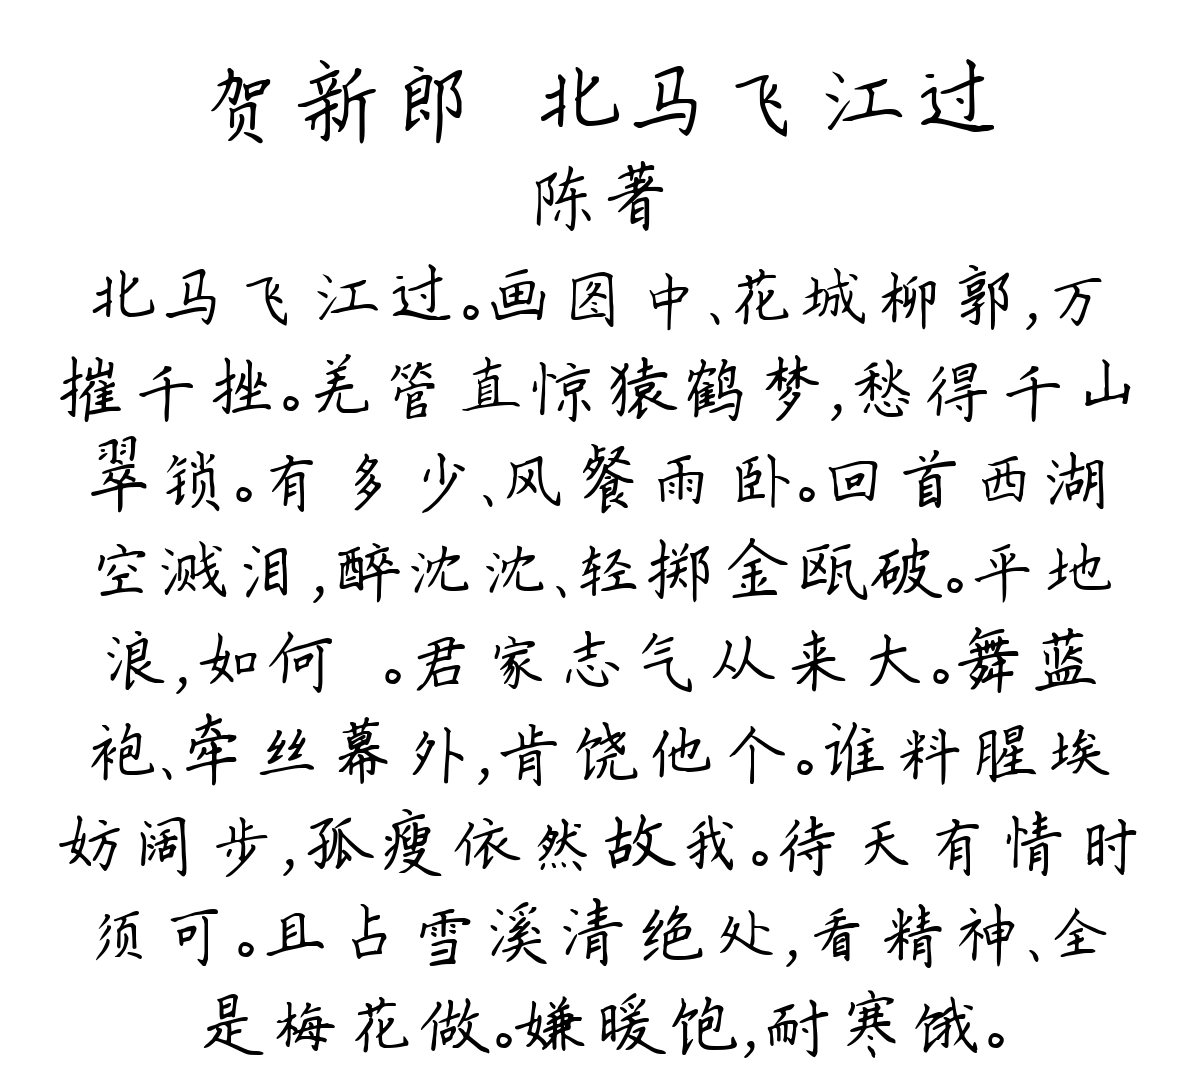 贺新郎 北马飞江过
陈著
北马飞江过。画图中、花城柳郭,万
摧千挫。羌管直惊猿鹤梦,愁得千山
翠锁。有多少、风餐雨卧。回首西湖
空溅泪,醉沈沈、轻掷金瓯破。平地
浪,如何 。君家志气从来大。舞蓝
袍、牵丝幕外,肯饶他个。谁料腥埃
妨阔步,孤瘦依然故我。待天有情时
须可。且占雪溪清绝处,看精神、全
是梅花做。嫌暖饱,耐寒饿。